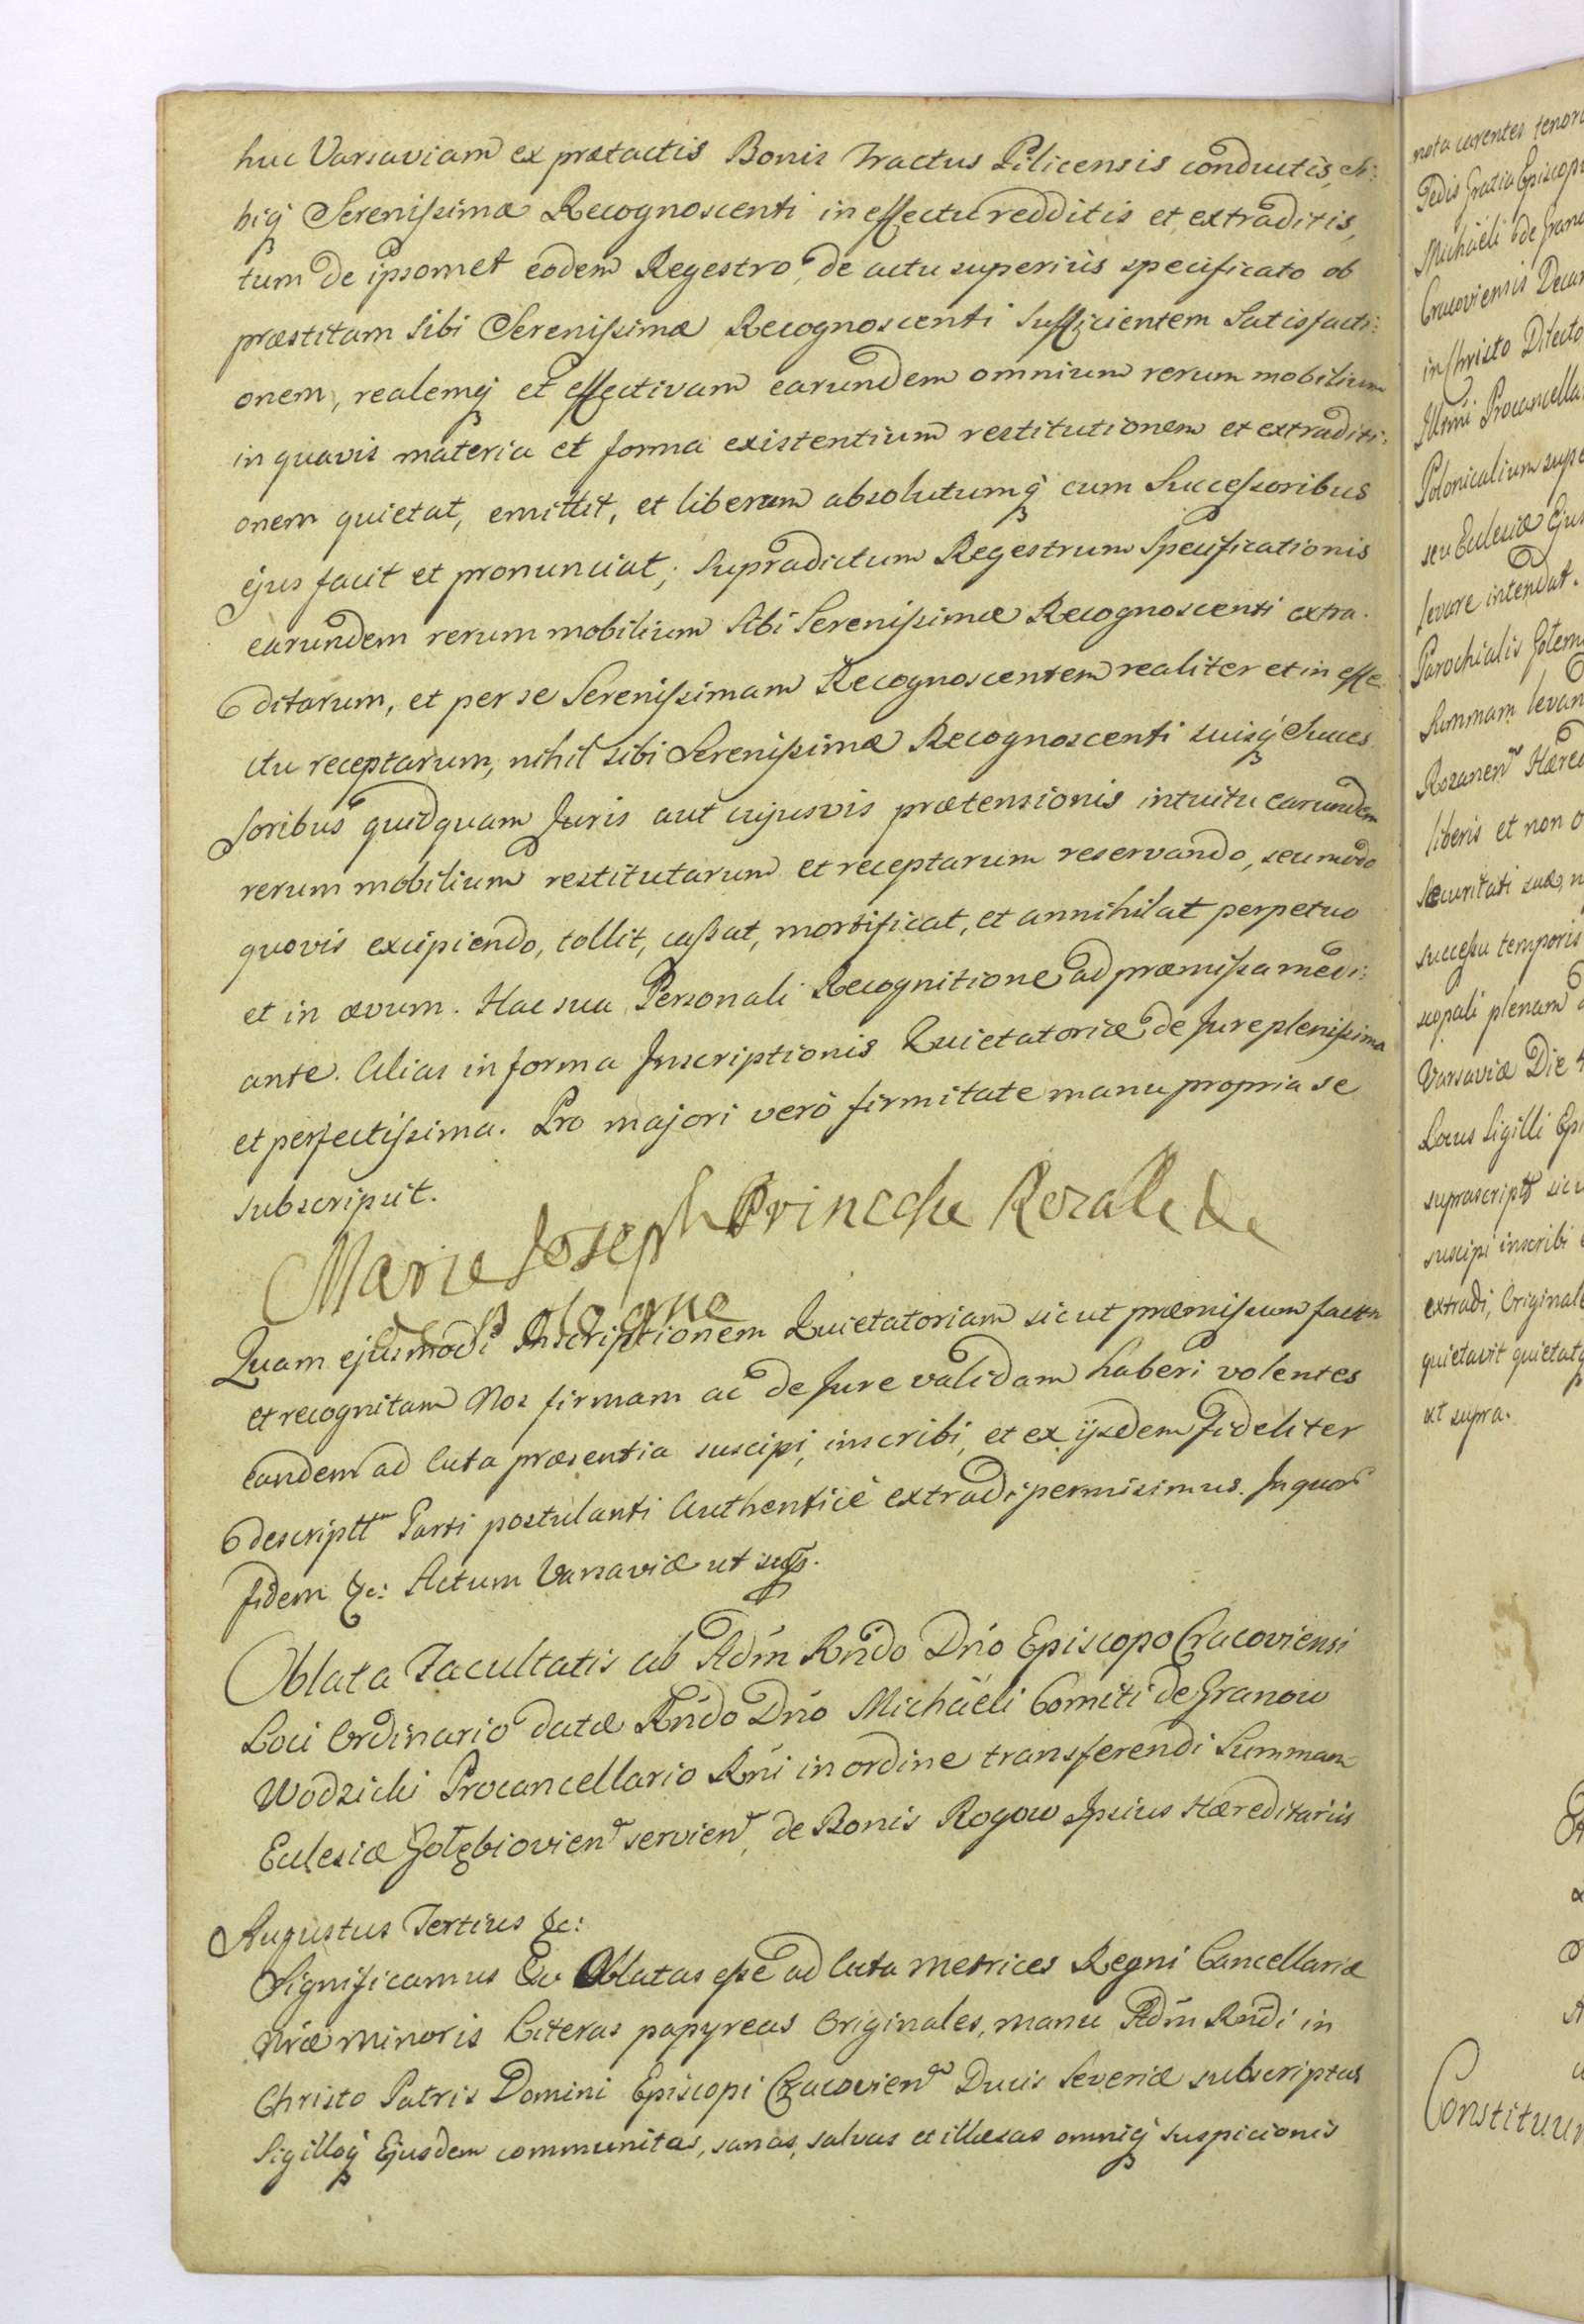 huc Varsaviam ex prætactis Bonis Tractus Pilicensis conductis, si:
biq́ Serenissimæ Recognoscenti in effectu redditis et extraditis,
tum de ipsomet eodem Regestro, de actu superiùs specificato ob
præstitam sibi Serenissimæ Recognoscenti sufficientem satisfacti:
onem, realemq́ et effectivam earundem omnium rerum mobilium
in quavis materia et forma existentium restitutionem et extraditi:
onem quietat, emittit, et liberum absolutumq́ cum Successoribus
ejus facit et pronunciat; supradictum Regestrum Specificationis
earundem rerum mobilium sibi Serenissimæ Recognoscenti extra:
ditarum, et per se Serenissimam Recognoscentem realiter et in effe:
ctu receptarum, nihil sibi Serenissimæ Recognoscenti suisq́ Succes
soribus quidquam Juris aut cujusvis prætensionis intuitu earundem
rerum mobilium restitutarum et receptarum reservando, seu modo
quovis excipiendo, tollit, cassat, mortificat, et annihilat perpetuo
et in ævum. Hac sua Personali Recognitione ad præmissa medi:
ante. Alias in forma Inscriptionis Quietatoriæ de Jure plenissima
et perfectissima. Pro majori verò firmitate manu propria se
subscripsit.
Marie Joseph Princesse Roiale de
Pologne
Quam ejusmodi Inscriptionem Quietatoriam sicut præmissum factam
et recognitam Nos firmam ac de Jure validam haberi volentes
eandem ad Acta præsentia suscipi, inscribi, et ex ijsdem fideliter
descriptt Parti postulanti Authenticè extradi permisimus. In quor
fidem &c: Actum Varsaviæ ut sup.
Oblata Facultatis ab Adm̃ Rńdo Dńo Episcopo Cracoviensi
Loci Ordinario datæ Rńdo Dńo Michäeli Comiti de Granow
Wodzicki Procancellario Rńi in ordine transferendi Summam
Ecclesiæ Gołębiovien servien, de Bonis Rogow Ipsius Hæreditariis
Augustus Tertius &c:
Significamus &c Oblatas esse ad Acta Metrices Regni Cancellariæ
Nræ Minoris Literas papyreas Originales, manu Adm̃ Rńdi in
Christo Patris Domini Episcopi Cracovien Ducis Severiæ subscriptas
Sigilloq́ Ejusdem communitas, sanas, salvas et illæsas omniq́ suspicionis
nota carentes tenoris
Dei Gratia Episcop
Michäeli de Grano
Cracoviensis Decan
in Christo Dilecto
Procancella
Polonicalium supe
seu Ecclesiæ Ejus
levare intendat.
Parochialis
Summam levan
Hæred
liberis et non o
Securitati suæ, n
successu temporis
scopali plenam
Varsaviæ Die 4
Locus Sigilli Epi
suprascript sicu
suscipi inscribi
extradi, Original
quietavit quietatq́
ut supra.
Constituun